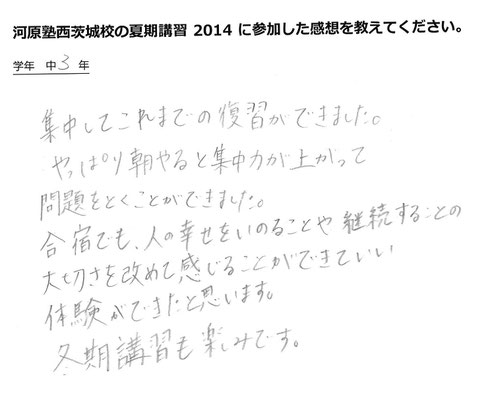 河原塾西茨城校の夏期講習 2014 に参加した感想を教えてください。
学年 中3年
集中してこれまでの復習ができました。
やっぱり朝やると集中力が上がって
問題をとくことができました。
合宿でも、人の幸せをいのることや継続することの
大切さを改めて感じることができていい
体験ができたと思います。
冬期講習も楽しみです。